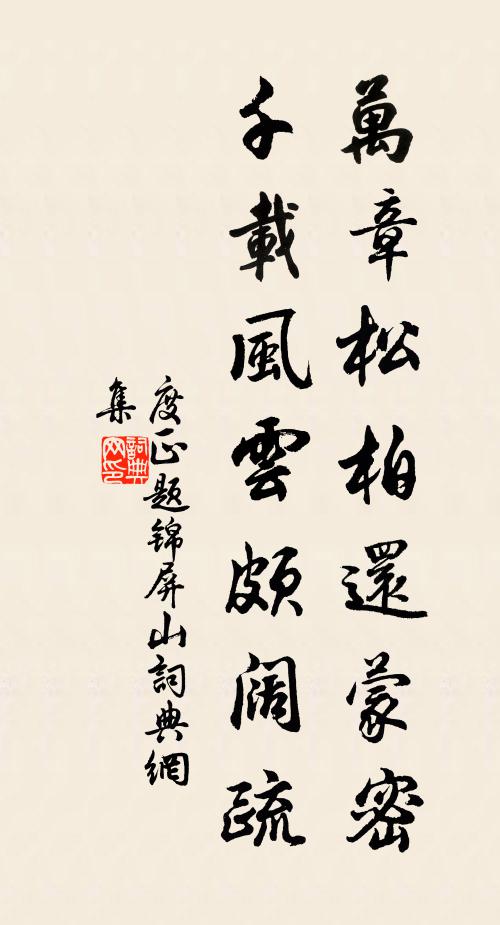 萬章松柏還蒙密
千載風雲頗闊疏
度正題锦屏山詞典網
集
詞典
网印